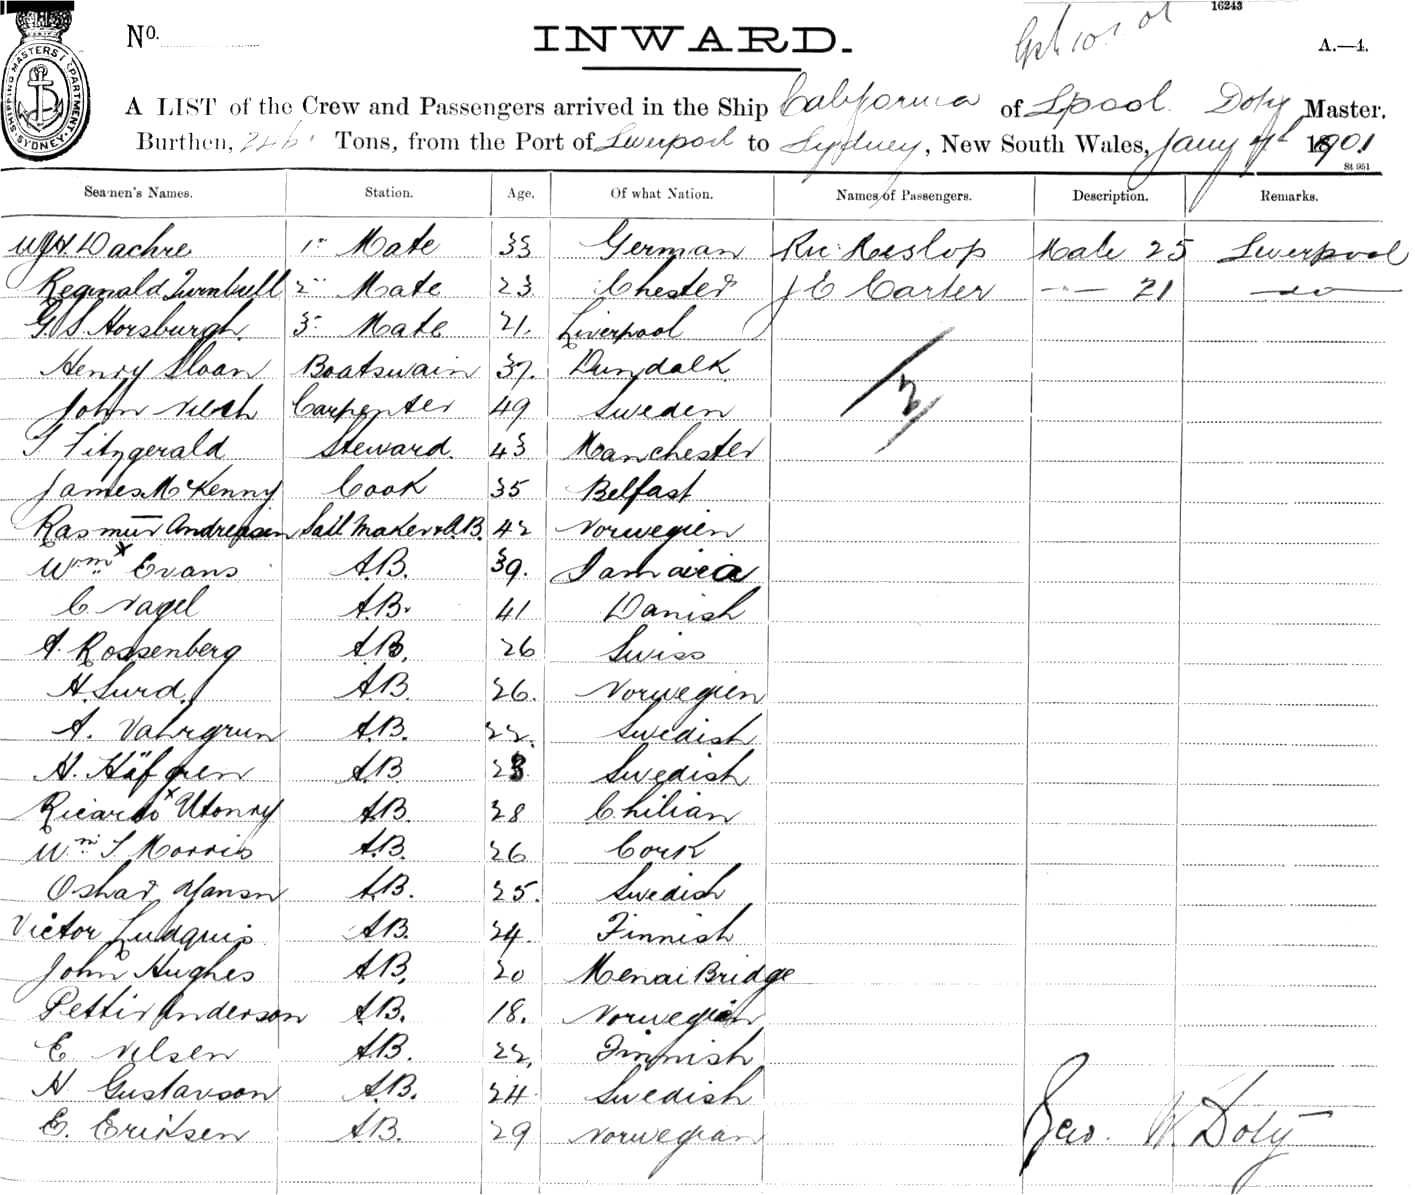 16243
No. INWARD. A.—4.
SHIPPING MASTERS DEPARTMENT. SYDNEY.
A LIST of the Crew and Passengers arrived in the Ship California of Lpool. Doty Master.
Burthen, Tons, from the Port of Liverpool to Sydney, New South Wales, Jany 1901
St 951
Seamen's Names. Station. Age. Of what Nation. Names of Passengers. Description. Remarks.
W.H. Dachre 1st Mate 33 German Ric Heslop Male 25 Liverpool
Reginald Turnbull 2nd Mate 23 Chester J E Carter —"— 21 —do—
G.S. Horsburgh. 3rd Mate 21. Liverpool
Henry Sloan Boatswain 37. Dundalk
John Carpenter 49 Sweden
T Fitzgerald Steward. 43 Manchester
James McKenny Cook 35 Belfast
Rasmus Andreasen Sail Maker & A.B. 42 Norwegien
Wm x Evans A.B. 39. Jamaica
C. Nagel A.B. 41 Danish
A. Rossenberg A.B. 26 Swiss
H. Lurd. A.B. 26. Norwegien
A. Vahrgrun A.B. 22. Swedish
H. Häfgren A.B. 23 Swedish
Ricardo x Utonry A.B. 28 Chilian
Wm T Morris A.B. 26 Cork
Oskar A.B. 25. Swedish
Victor Ludquis A.B. 24. Finnish
John Hughes A.B. 20 Menai Bridge
Petter Anderson A.B. 18. Norwegian
E Nelsen A.B. 22. Finnish
H Gustavson A.B. 24 Swedish
E. Eriksen A.B. 29 Norwegian
Geo. W. Doty